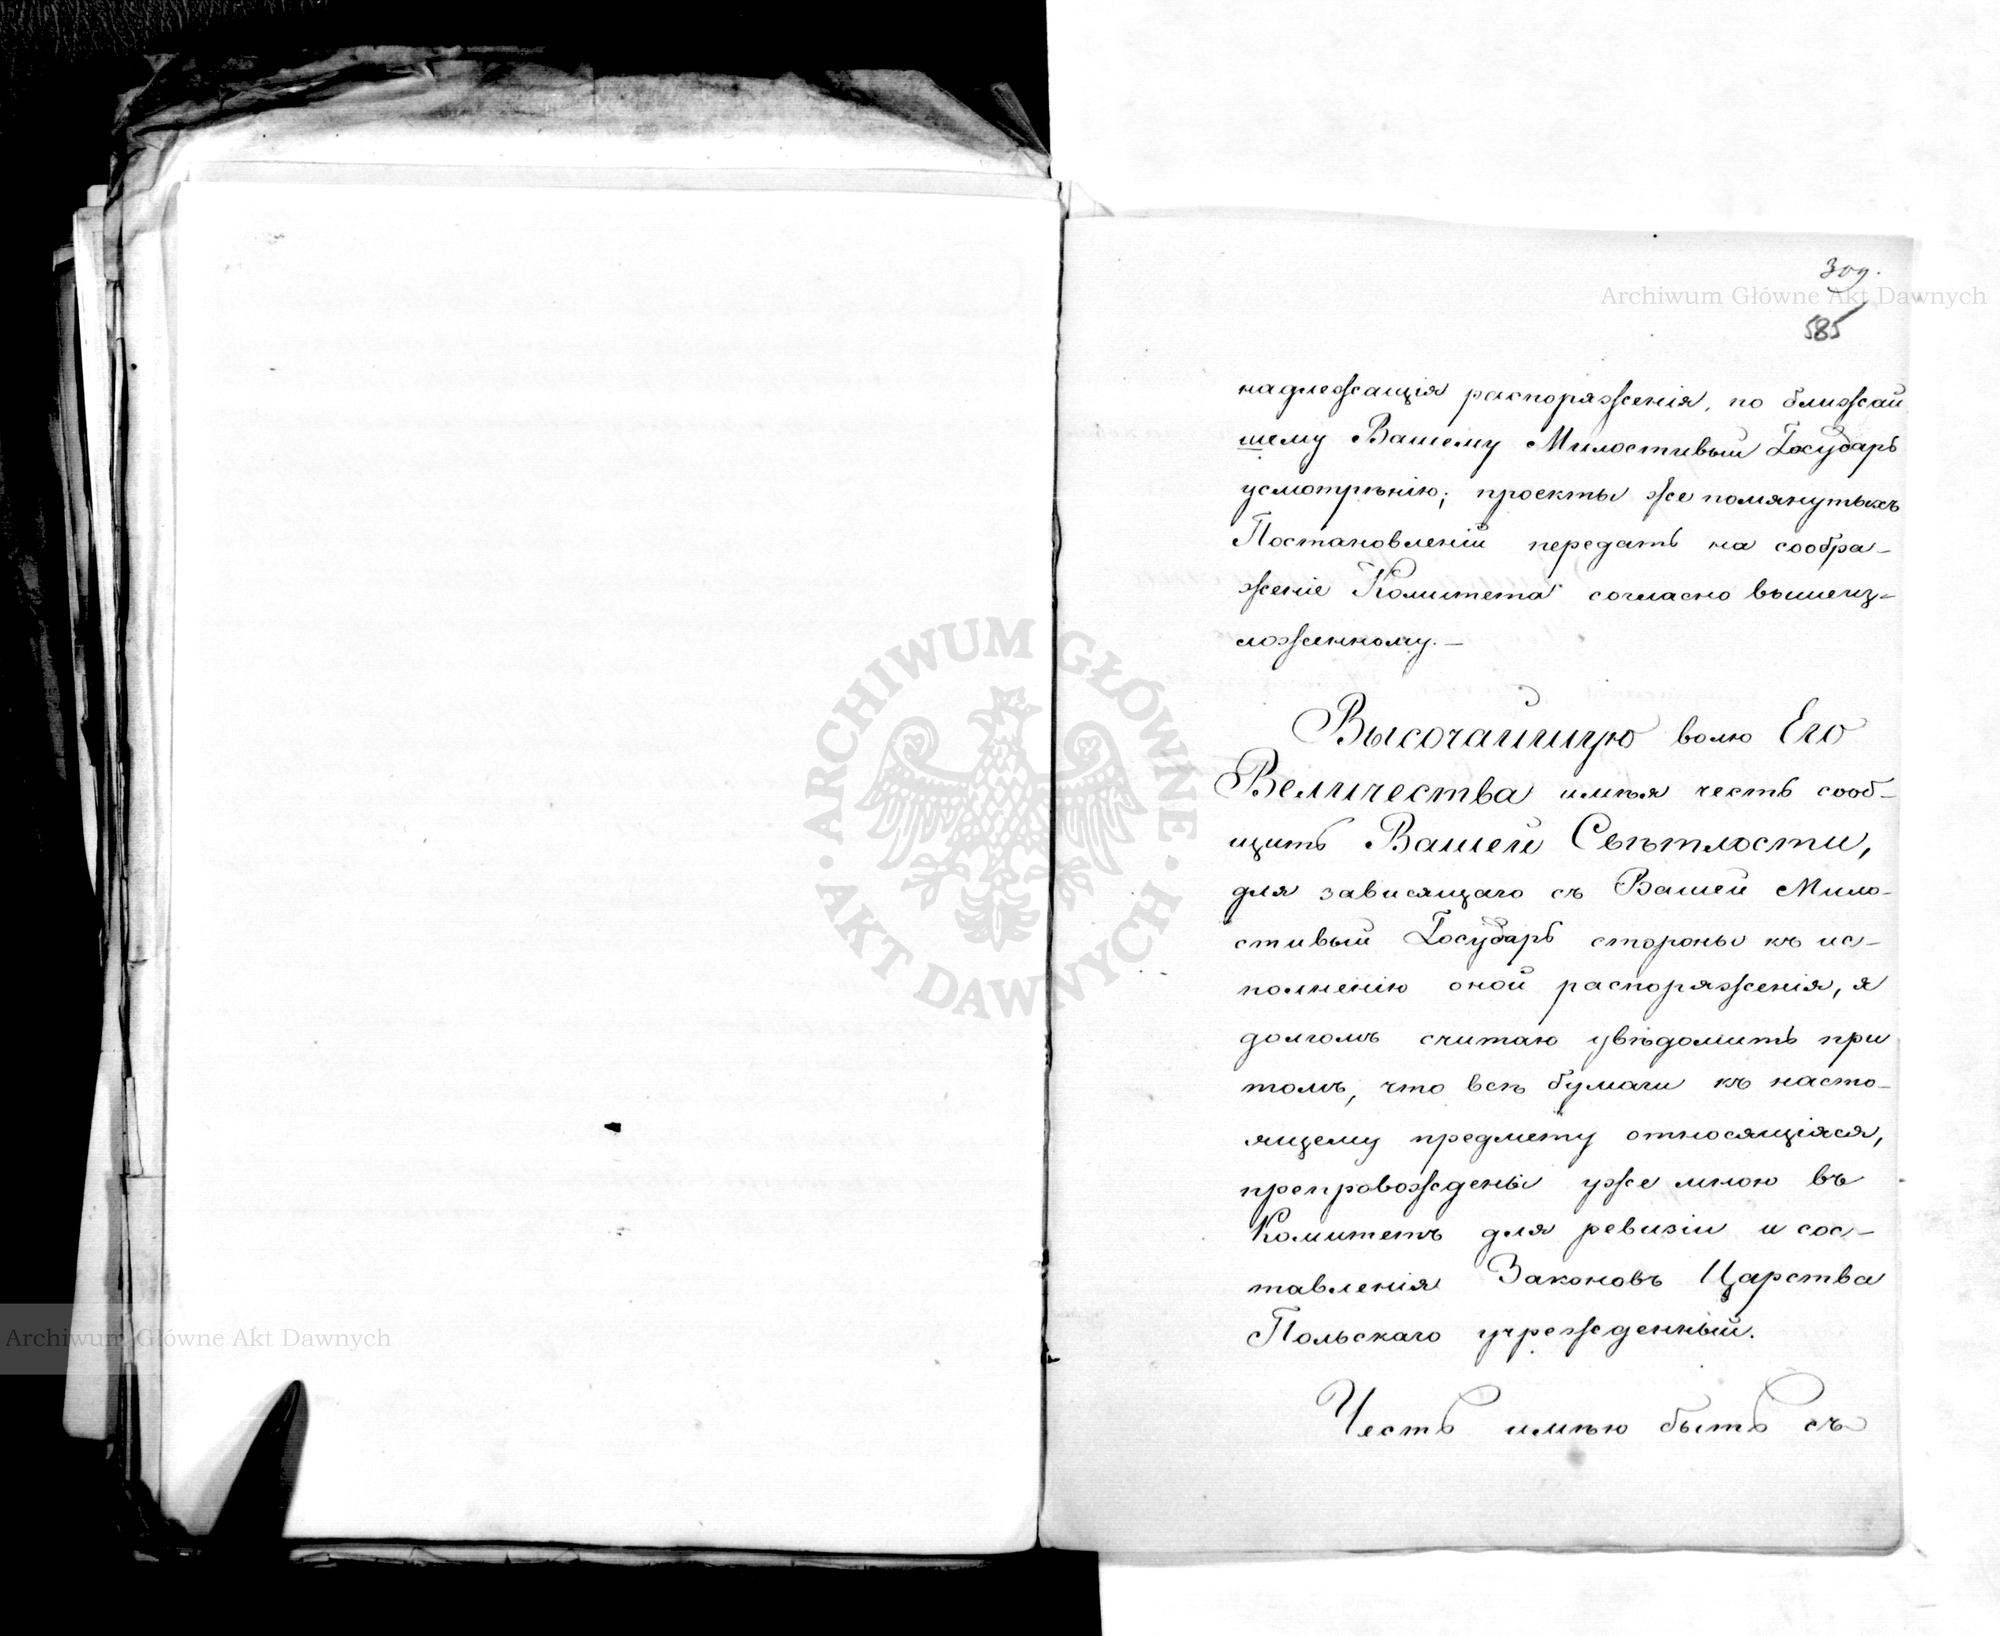 309.
Archiwum Główne Akt Dawnych
585
надлежащія распоряженія, по ближай
шему Вашему Милостивый Государь
усмотрѣнію; проекты же помянутыхъ
Постановленій передать на сообра-
женіе Комитета согласно вышеиз-
ложенному.—
Высочайшую волю Его
Величества имѣя честь сооб-
щить Вашей Свѣтлости,
для зависящаго съ Вашей Мило-
стивый Государь стороны къ ис-
полненію оной распоряженія, я
долгомъ считаю увѣдомить при
томъ, что всѣ бумаги къ насто-
ящему предмету относящіяся,
препровождены уже мною въ
Комитетъ для ревизіи и сос-
тавленія Законовъ Царства
Польскаго учрежденный.
Честь имѣю быть съ
ARCHIWUM GŁÓWNE
AKT DAWNYCH
Archiwum Główne Akt Dawnych